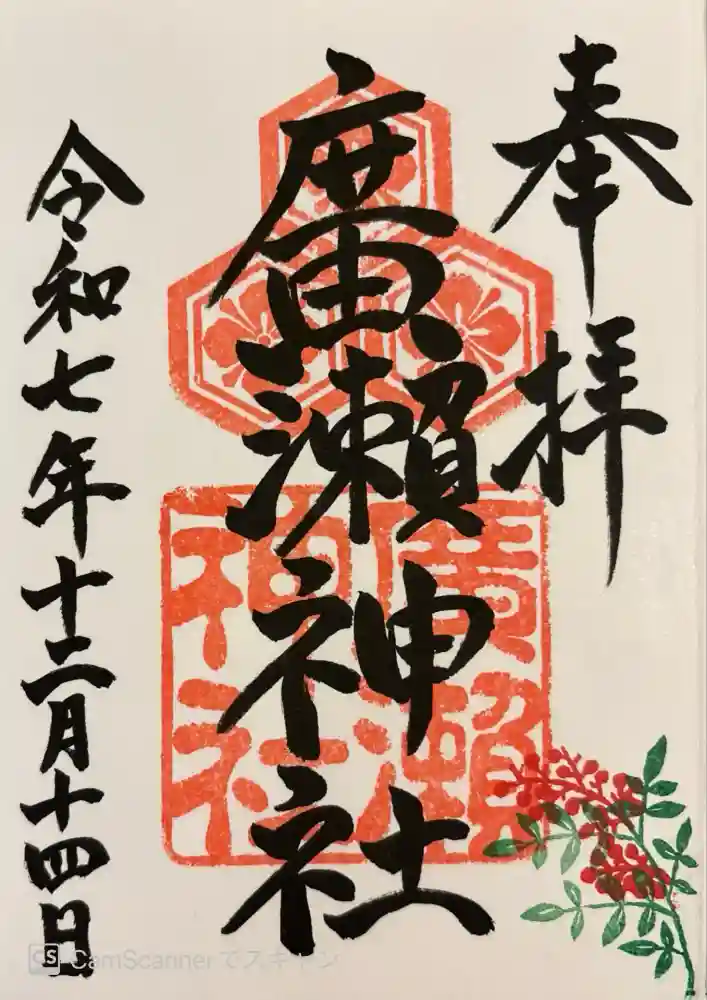 奉拝
廣瀬神社
廣瀬神社
令和七年十二月十四日
CS CamScannerでスキャン